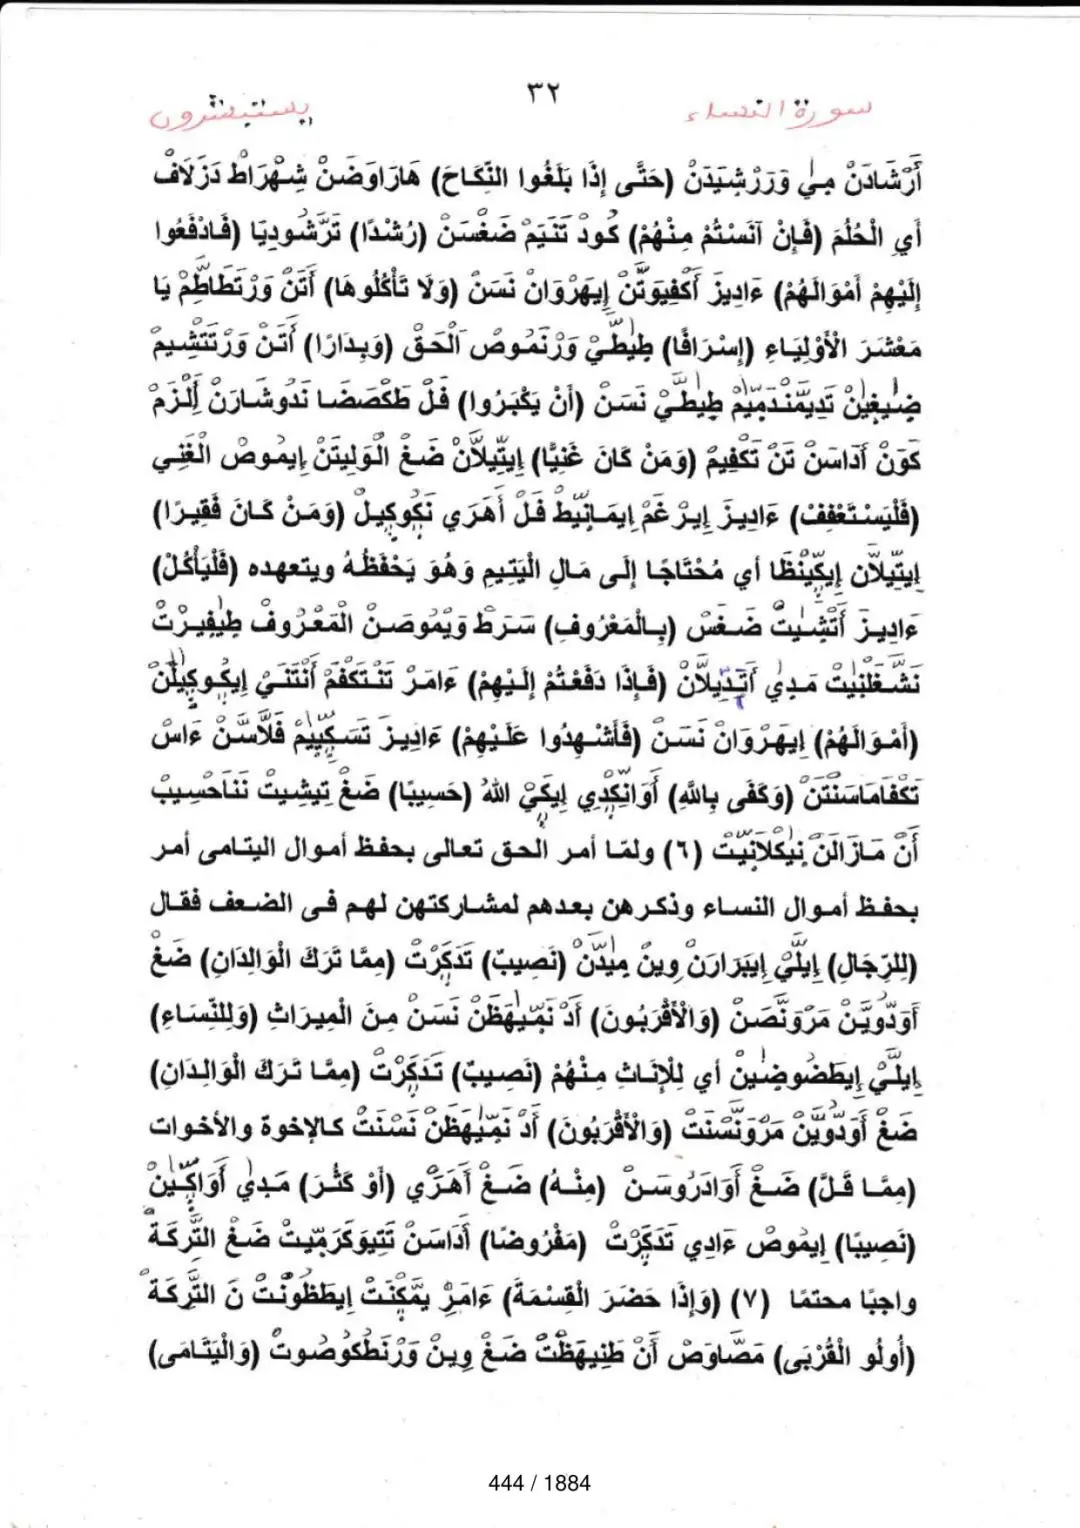 ٣٢
سورة النساء
يستبشرون
أَرْشَادَنْ مِيٰ وَرَرْشِيَدَنْ (حَتَّى إِذَا بَلَغُوا النِّكَاحَ) هَارَاوَضَنْ شِهْرَاطْ دَزَلَافْ
أَيِ الْحُلُمَ (فَإِنْ آنَسْتُمْ مِنْهُمْ) كُودْ تَنَيَمْ ضَغْسَنْ (رُشْدًا) تَرَّشُودِيَا (فَادْفَعُوا
إِلَيْهِمْ أَمْوَالَهُمْ) ءَادِيزْ أَكْفِيَوَتَنْ إِيهَرْوَانْ نَسَنْ (وَلَا تَأْكُلُوهَا) أَتَنْ وَرْتَطَاطَّمْ يَا
مَعْشَرَ الْأَوْلِيَاءِ (إِسْرَافًا) طِيْطَّيْ وَرْنَمُوصْ اَلْحَقْ (وَبِدَارًا) أَتَنْ وَرْتَتْشِيمْ
ضِيغِينْ تَدِيمَنْدَمِّيمْ طِيطَّيْ نَسَنْ (أَنْ يَكْبَرُوا) فَلْ طَكْصَضَا نَدُوشَارَنْ أَلْزَمْ
كَوَنْ أَدَاسَنْ تَنْ تَكْفِيمْ (وَمَنْ كَانَ غَنِيًّا) إِيتِّيلَانْ ضَغْ الْوَلِيتَنْ إِيمُوصْ الْغَنِي
(فَلْيَسْتَعْفِفْ) ءَادِيزْ إِيرْغَمْ إِيمَانِّيطْ فَلْ أَهَرَي نَكُوكِيلْ (وَمَنْ كَانَ فَقِيرًا)
إِيتِّيلَانْ إِيكِّينْظَا أي مُحْتَاجًا إِلَى مَالِ الْيَتِيمِ وَهُوَ يَحْفَظُهُ ويتعهده (فَلْيَأْكُلْ)
ءَادِيزْ أَتْشِيتْ ضَغَسْ (بِالْمَعْرُوفِ) سَرَطْ وَيْمُوصَنْ الْمَعْرُوفْ طِيْفِيرْتْ
نَشَّغَلْنِيتْ مَدِي أَتَدِّيلَانْ (فَإِذَا دَفَعْتُمْ إِلَيْهِمْ) ءَامَرْ تَنْتَكْفَمْ أَنْتَنَيْ إِيكُوكِيلَنْ
(أَمْوَالَهُمْ) إِيهَرْوَانْ نَسَنْ (فَأَشْهِدُوا عَلَيْهِمْ) ءَادِيزَ تَسَكِّيِيمْ فَلَاسَنْ ءَاسْ
تَكْفَامَاسَنْتَنْ (وَكَفَى بِاللهِ) أَوَانْكُدِي إِيكَيْ اللهُ (حَسِيبًا) ضَغْ تِيشِيتْ نَنَاحْسِيبْ
أَنْ مَازَالَنْ نِيكْلَانِيتْ (٦) ولمّا أمر الحق تعالى بحفظ أموال اليتامى أمر
بحفظ أموال النساء وذكرهن بعدهم لمشاركتهن لهم فى الضعف فقال
(لِلرِّجَالِ) إِيلَّيْ إِيبَرَارَنْ وِينْ مِيدَّنْ (نَصِيبٌ) تَدَكِرْتْ (مِمَّا تَرَكَ الْوَالِدَانِ) ضَغْ
أَوَدُّوِيَّنْ مَرَوَنَّصَنْ (وَالْأَقْرَبُونَ) أَدْ نَمِّيهَظَنْ نَسَنْ مِنَ الْمِيرَاثِ (وَلِلنِّسَاءِ)
إِيلَّيْ إِيطَضُوضِينْ أي لِلْإِنَاثِ مِنْهُمْ (نَصِيبٌ) تَدَكِرْتْ (مِمَّا تَرَكَ الْوَالِدَانِ)
ضَغْ أَوَدُّوِيَّنْ مَرَوَنَّسْنَتْ (وَالْأَقْرَبُونَ) أَدْ نَمِّيهَظَنْ نَسْنَتْ كالإخوة والأخوات
(مِمَّا قَلَّ) ضَغْ أَوَادَرُوسَنْ (مِنْهُ) ضَغْ أَهَرَي (أَوْ كَثُرَ) مَدِي أَوَاكِّينْ
(نَصِيبًا) إِيمُوصْ ءَادِي تَدَكِرْتْ (مَفْرُوضًا) أَدَاسَنْ تَتِيوَكَرَمِّيتْ ضَغْ التَّرِكَةُ
واجبًا محتمًا (٧) (وَإِذَا حَضَرَ الْقِسْمَةَ) ءَامَرْ يَمَّكِنَتْ إِيطَظُونْتْ نَ التَّرِكَةْ
(أُولُو الْقُرْبَى) مَصَّاوَصْ أَنْ طَنِيهَظَّتْ ضَغْ وِينْ وَرْنَطْكُوصُوتْ (وَالْيَتَامَى)
444 / 1884